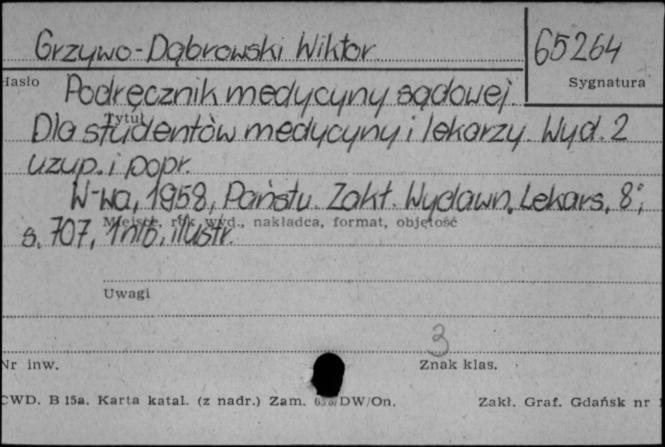 Grzywo-Dąbrowski Wiktor 65264
Hasło Sygnatura
Podręcznik medycyny sądowej.
Tytuł
Dla studentów medycyny i lekarzy. Wyd. 2
uzup. i popr.
W-wa, 1958, Państw. Zakł. Wydawn. Lekars., 8°,
Miejsce, rok wyd., nakładca, format, objętość
s. 707, 1 nlb., ilustr.
Uwagi
3
Nr inw. Znak klas.
CWD. B 15a. Karta katal. (z nadr.) Zam. DW/On. Zakł. Graf. Gdańsk nr